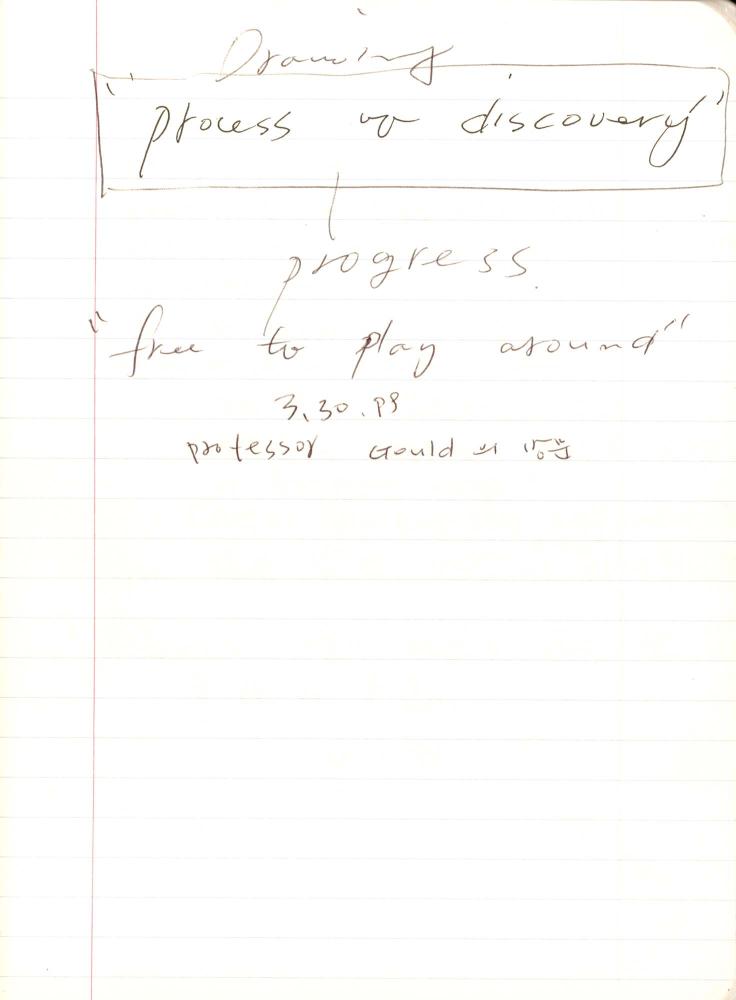 Drawing
"process of discovery"
progress
"free to play around"
3.30.98
professor Gould의 말씀